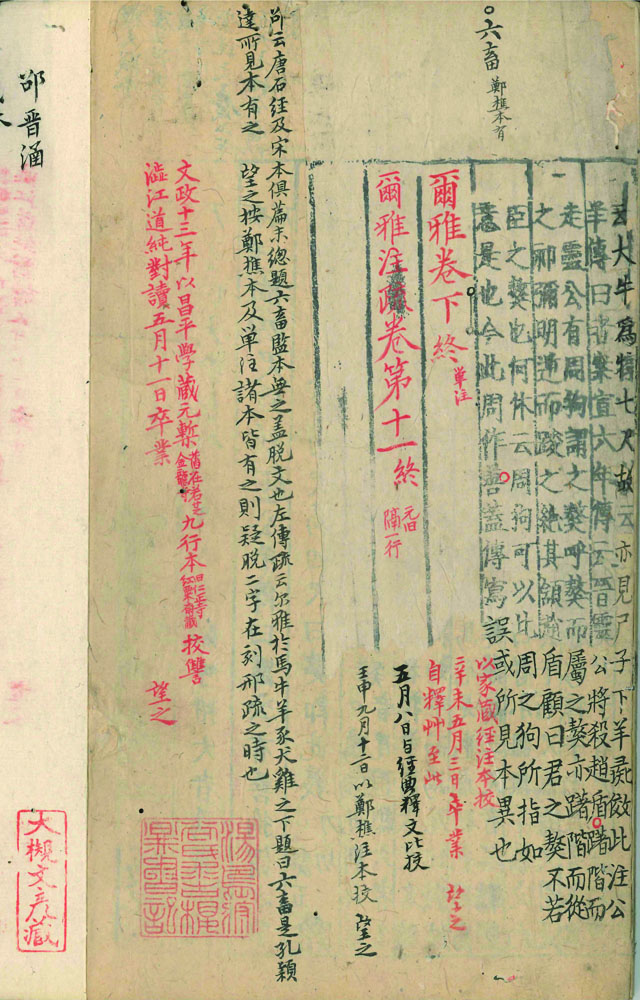 六畜 鄭樵本有
云犬牛爲犉七尺故云亦見尸子下羊彘倣此注公
羊傳曰者案宣六年傳云晋靈公將殺趙盾躇階而
走靈公有周狗謂之獒呼獒而屬之獒亦躇階而從
之祁彌明逆而踆之絶其頷趙盾顧曰君之獒不若
臣之獒也何休云周狗可以比周之狗所指如
意是也今此周作善蓋傳寫誤或所見本異也
爾雅卷下終 單注
爾雅注疏卷第十一終 元曰隔一行
以家藏經注本校
辛未五月三日卒業 望之
自釋艸至此
五月八日与經典釋文比挍
壬申九月十二日以鄭樵注本挍 望之
邵云唐石経及宋本俱篇末總題六畜監本無之蓋脱文也左傳疏云尔雅於馬牛羊豕犬雞之下題曰六畜是孔穎
達所見本有之 望之按鄭樵本及単注諸本皆有之則疑脱二字在刻邢疏之時也
文政十三年以昌平學蔵元槧舊在若芝金龍寺九行本曰仁正寺紅粟齋蔵校讐 望之
澁江道純對讀五月十一日卒業
邵晋涵
大槻文彦蔵